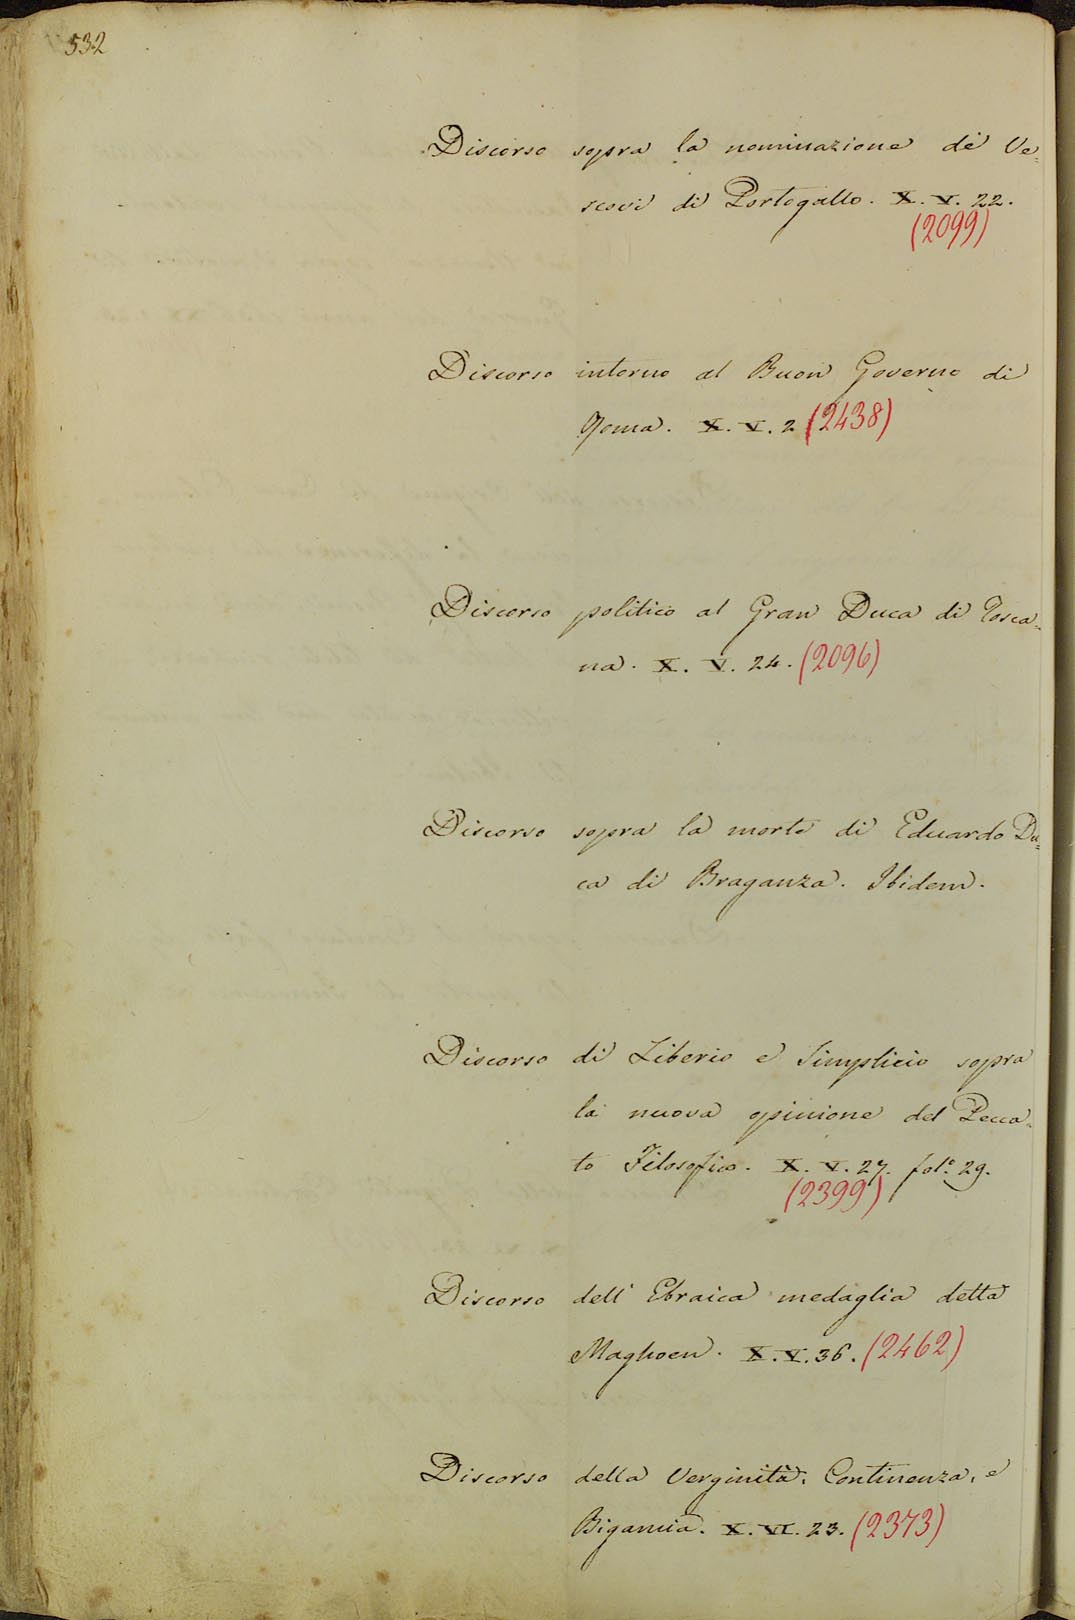 532
Discorso sopra la nominazione de' Ve=
scovi di Portogallo. X. V. 22.
(2099)
Discorso intorno al Buon Governo di
Roma. X. V. 2 (2438)
Discorso politico al Gran Duca di Tosca=
na. X. V. 24. (2096)
Discorso sopra la morte di Eduardo Du=
ca di Braganza. Ibidem.
Discorso di Liberio e Simplicio sopra
la nuova opinione del Pecca=
to Filosofico. X. V. 27. fol.º 29.
(2399)
Discorso dell' Ebraica medaglia detta
Maghoen. X. V. 36. (2462)
Discorso della Verginità, Continenza, e
Bigamia. X. VI. 23. (2373)